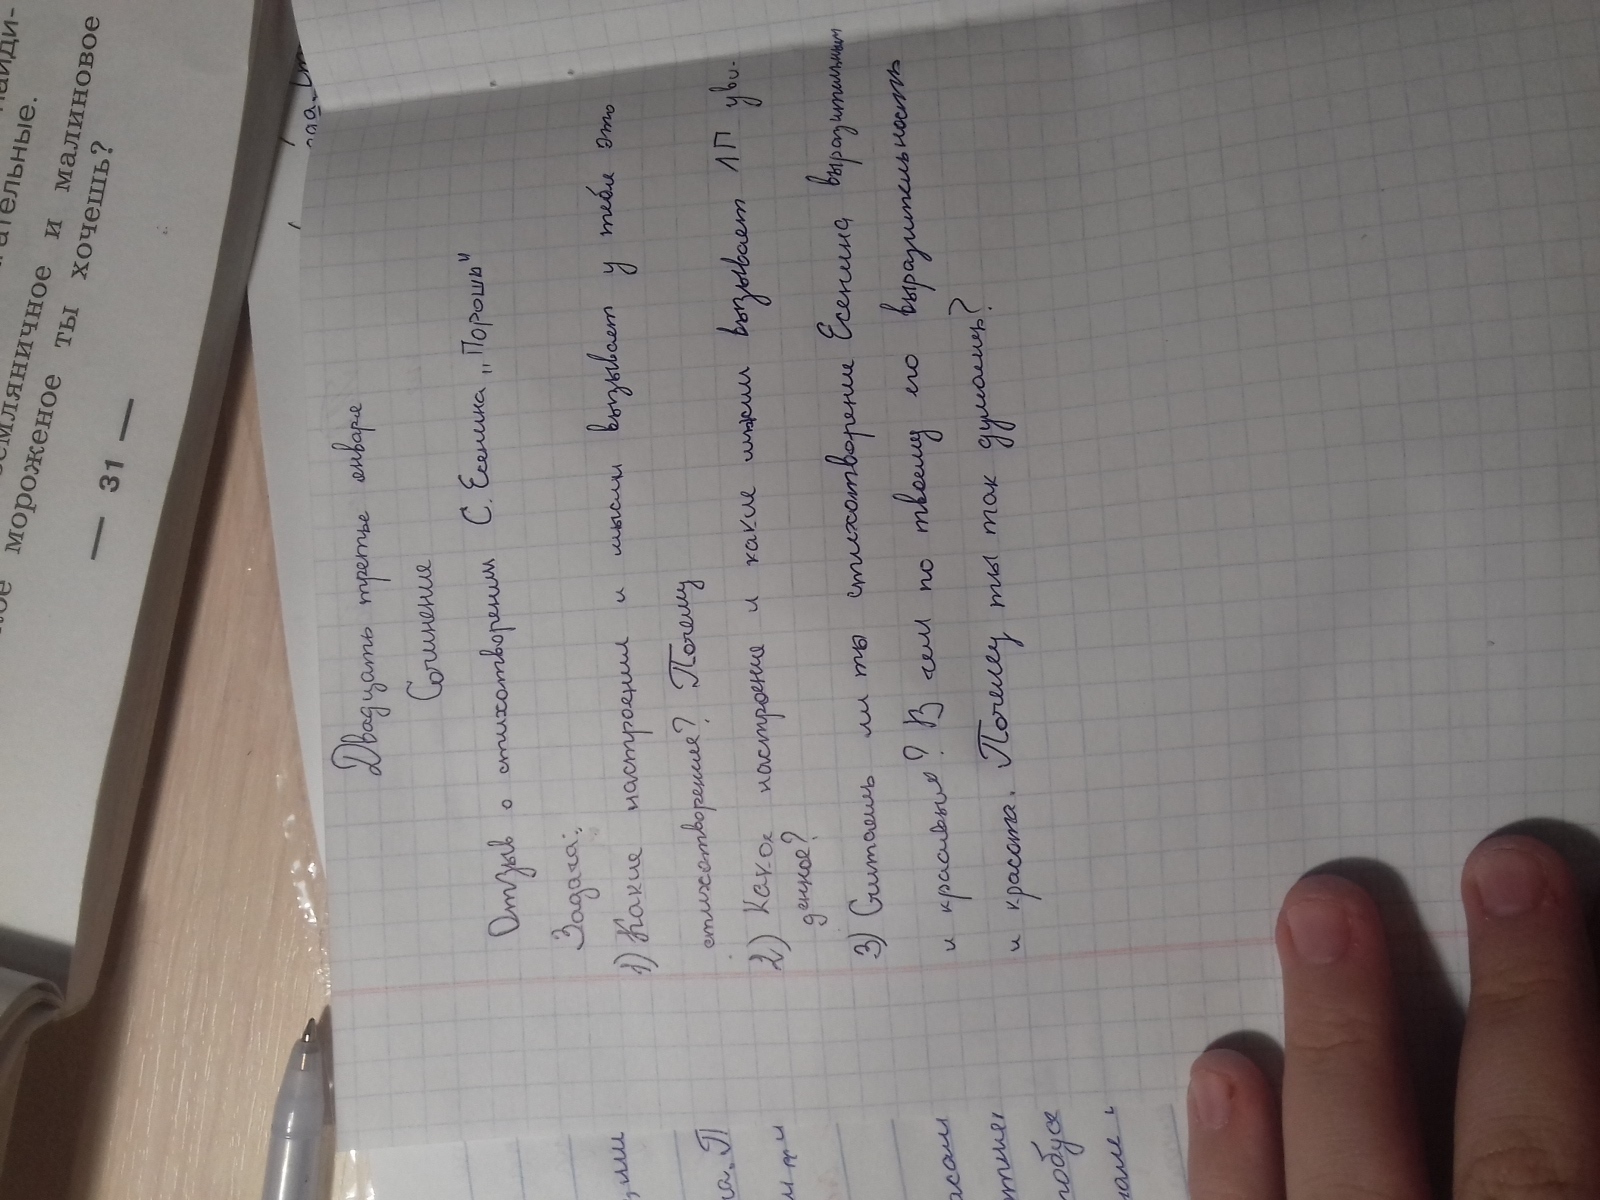 найди-
ательные.
земляничное и малиновое
мороженое ты хочешь?
— 31 —
Двадцать третье января
Сочинение
Отзыв о стихотворении С. Есенина „Пороша"
Задача:
1) Какие настроения и мысли вызывает у тебя это
стихотворение? Почему
2) Какое настроение и какие мысли вызывает ЛП уви-
денное?
3) Считаешь ли ты стихотворение Есенина выразительным
и красивым? В чем по твоему его выразительность
и красота. Почему ты так думаешь?